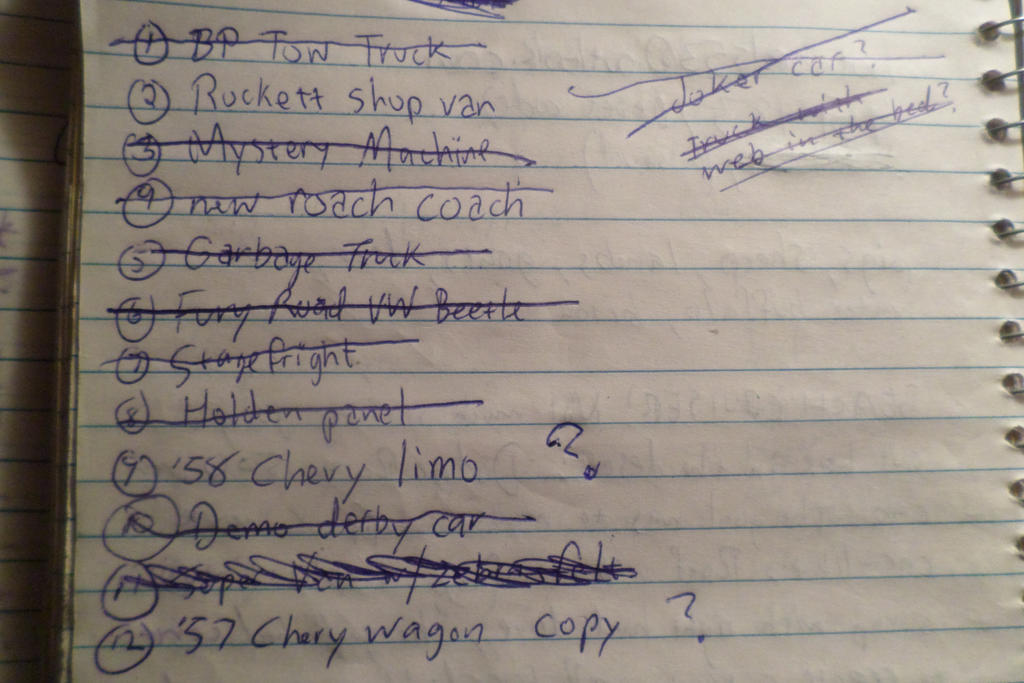 ① BP Tow Truck
② Rockett shop van
③ Mystery Machine
④ new roach coach
⑤ Garbage Truck
⑥ Fury Road VW Beetle
⑦ Stagefright
⑧ Holden panel
⑨ '58 Chevy limo ?
⑩ Demo derby car
⑪ Super Van w/ zebra felt
⑫ '57 Chevy wagon copy ?
Joker car?
Truck with
web in the bed?